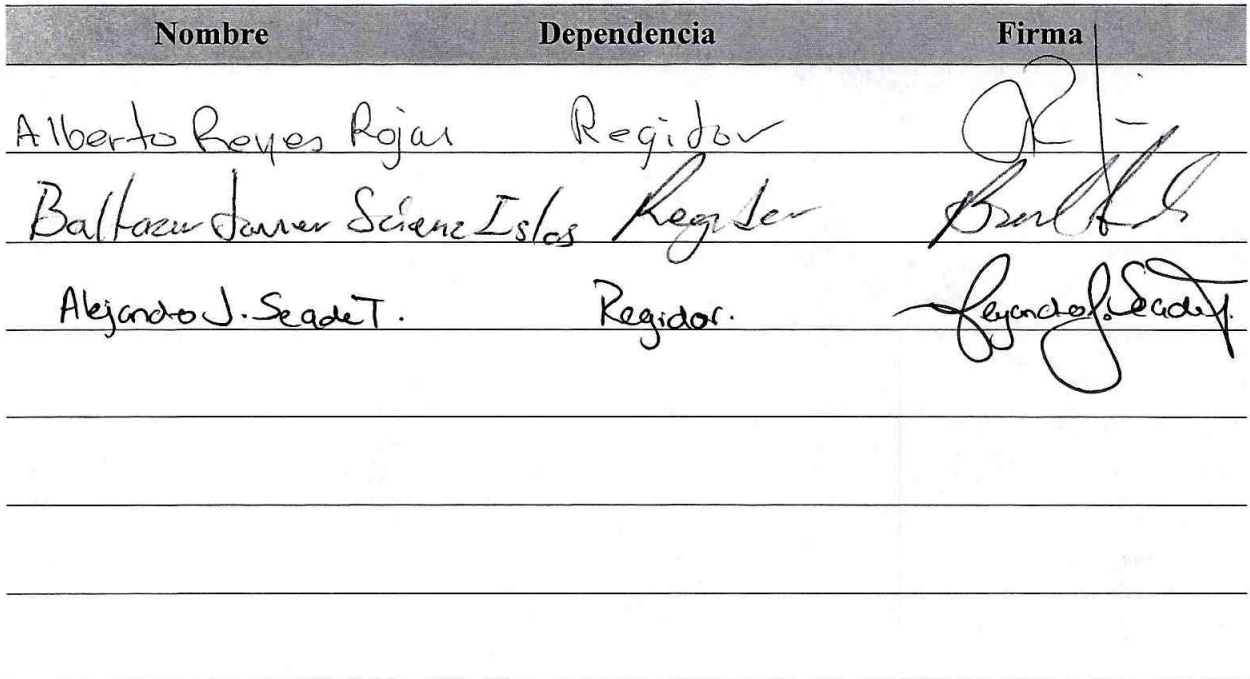 Nombre Dependencia Firma
Alberto Reyes Rojas Regidor
Baltazar Javier Islas Regidor
Alejandro J. Seade T. Regidor. Alejandro J. Seade T.